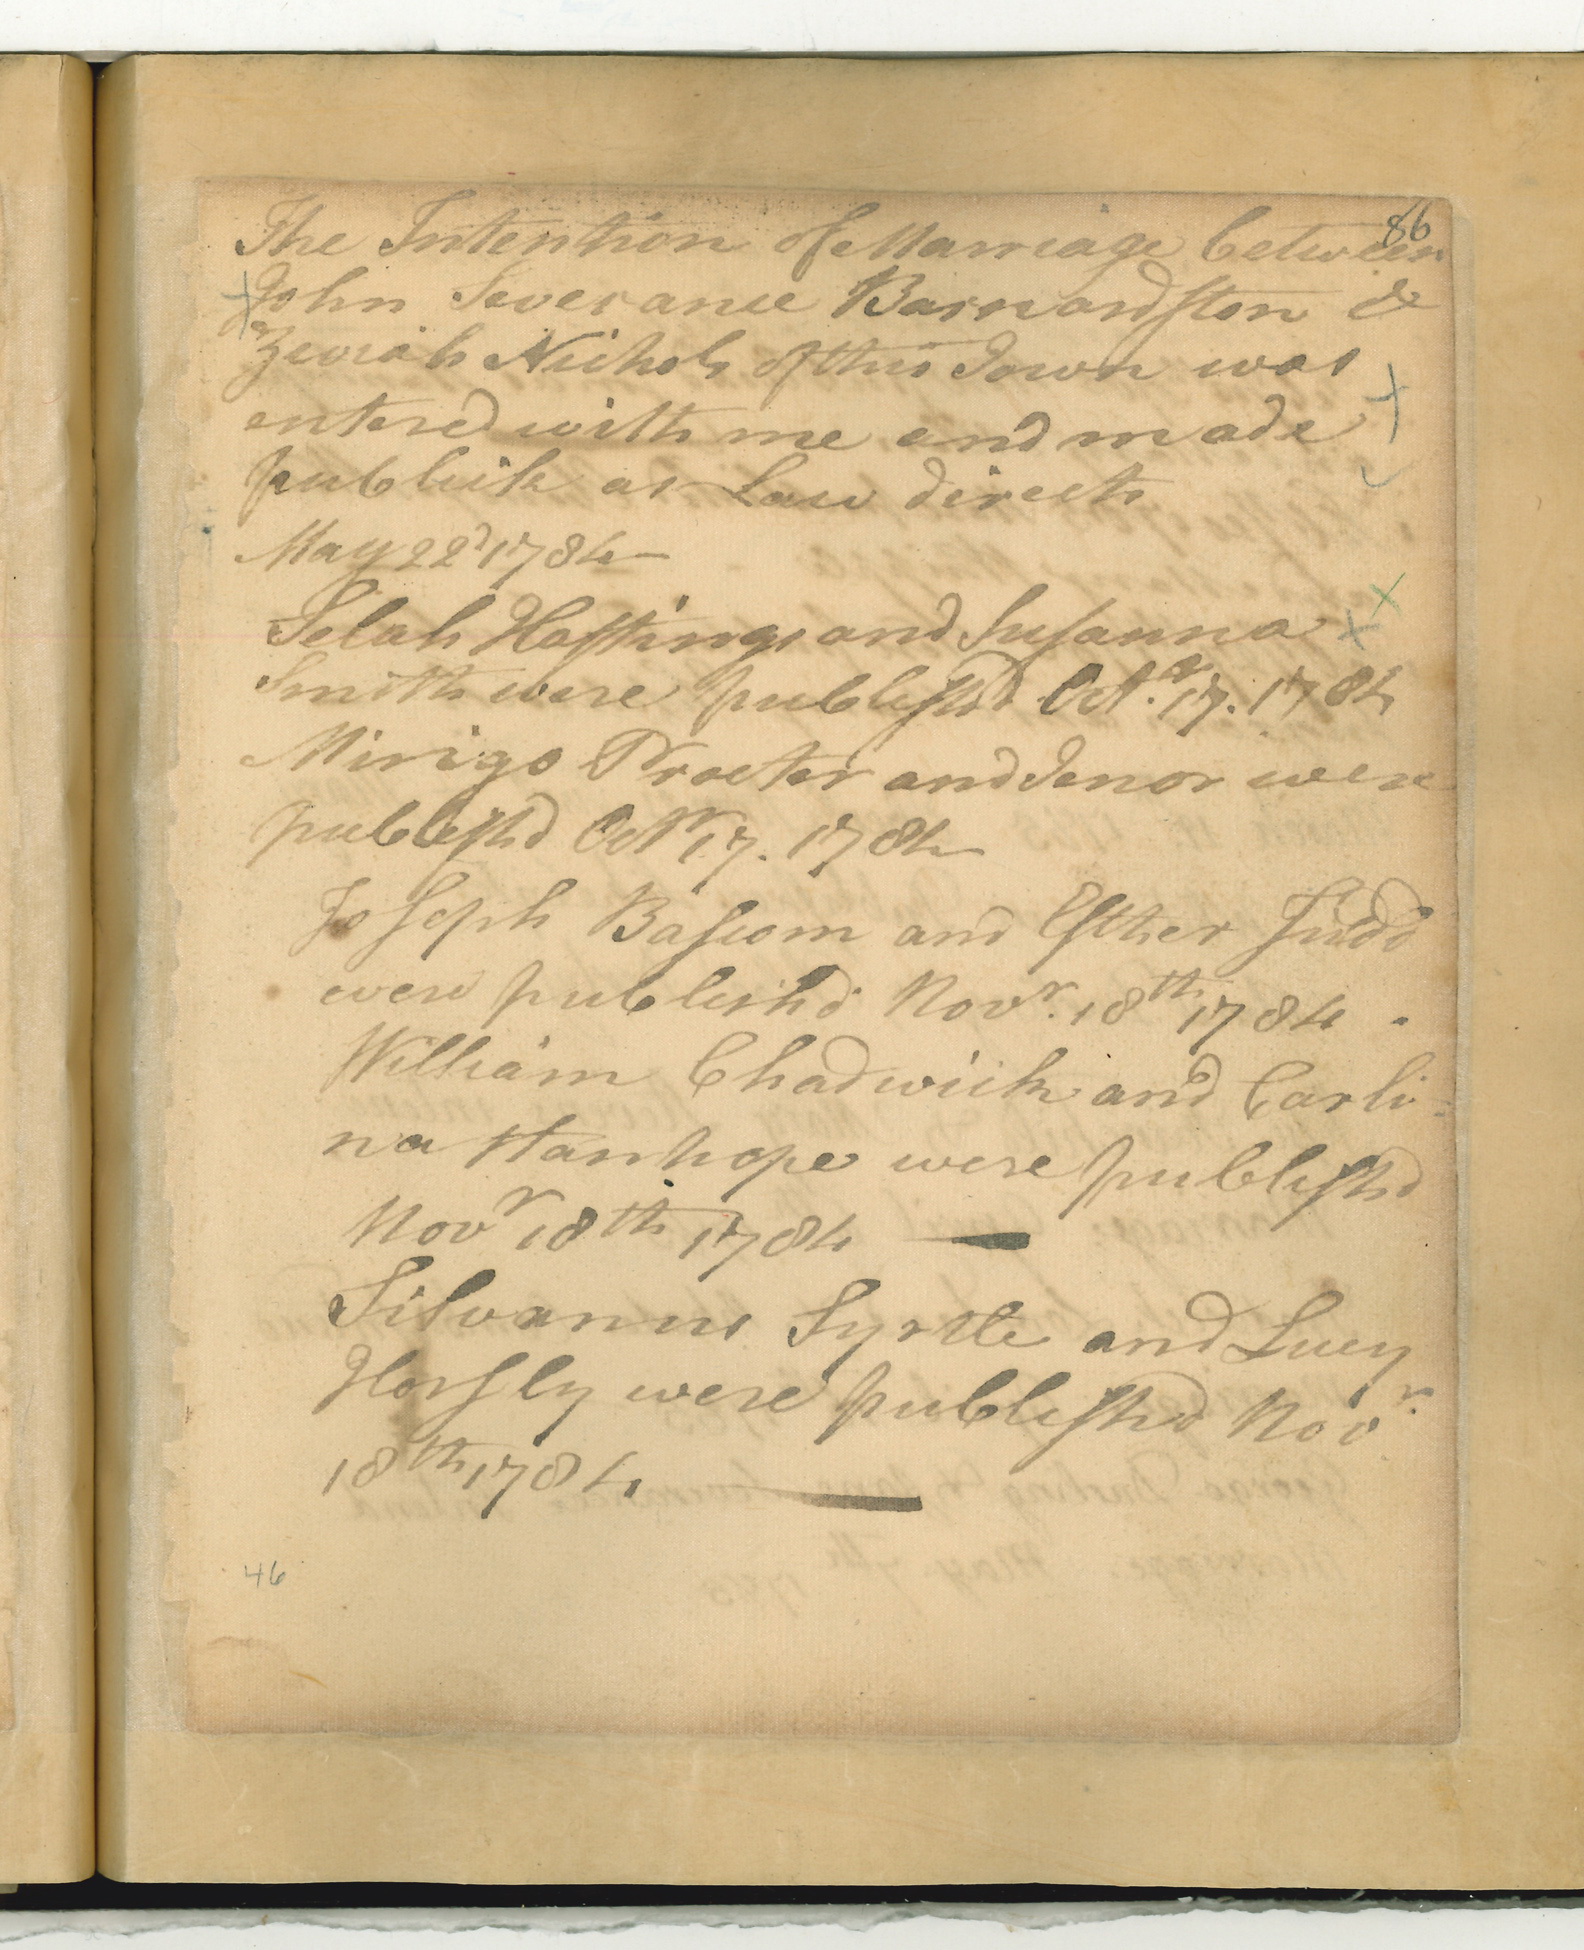 86
The Intention of Marriage between
John Severance Barnardston &
Zeviah Nichols of this Town was
entered with me and made
publick as Law directs
May 22d 1784
Selah Hastings and Susanna
Smith were publishd Octr. 17. 1784
Mirigo Procter and Jenor were
publishd Octr 17. 1784
Joseph Bascom and Esther Judd
were publishd Novr. 18th 1784.
William Chadwick and Carli-
na Stanhope were publishd
Novr 18th 1784
Silvanus Syrtle and Lucy
Horsly were publishd Novr.
18th 1784
46